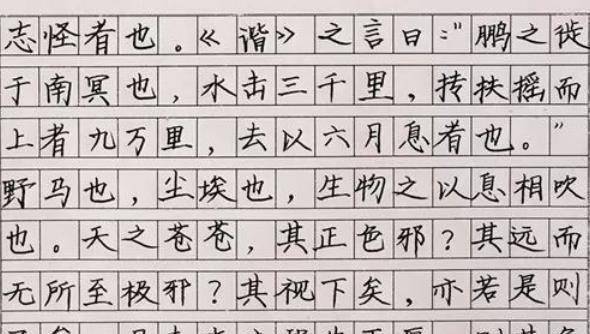 志怪者也。《谐》之言曰:"鹏之徙
于南冥也,水击三千里,抟扶摇而
上者九万里,去以六月息者也。"
野马也,尘埃也,生物之以息相吹
也。天之苍苍,其正色邪?其远而
无所至极邪?其视下矣,亦若是则